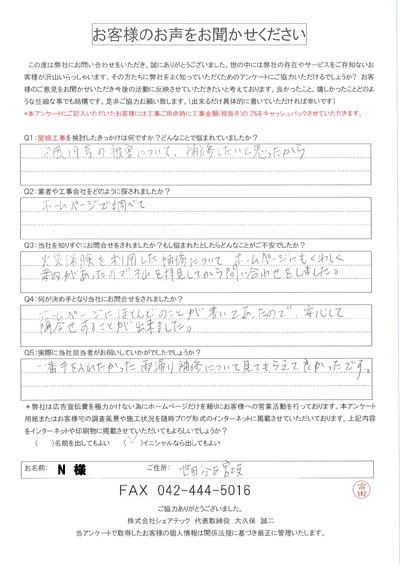 お客様のお声をお聞かせください
この度は弊社へお問い合わせをいただき、誠にありがとうございました。世の中には弊社の存在やサービスをご存知ないお
客様が沢山いらっしゃいます。その方たちに弊社をよく知っていただくためのアンケートにご協力いただけるでしょうか？ お客
様のご意見をお聞かせいただき今後の活動に反映させていただきたいと考えております。良かったこと、嬉しかったことどのよ
うな些細な事でも結構です。是非ご協力お願い致します。（出来るだけ具体的に書いていただければ幸いです）
*本アンケートにご記入いただいたお客様には工事ご用命時に工事金額（税抜き）の 2%をキャッシュバックさせていただきます。
Q1：屋根工事を検討したきっかけは何ですか？どんなことで悩まれていましたか？
台風19号の被害について、補修したいと思ったから
Q2：業者や工事会社をどのように探されましたか？
ホームページで調べて
Q3：当社を知りすぐにお問合せをされましたか？もし悩まれたとしたらどんなことがご不安でしたか？
火災保険を利用した補修について ホームページにもくわしく
案内があったので を拝見してから問い合わせをしました。
Q4：何が決め手となり当社にお問合せをされましたか？
ホームページにほとんどのことが書いてあたので、安心して
問合せすることが出来ました。
Q5：実際に当社担当者がお伺いしていかがでしたでしょうか？
一番手を入れたかった雨漏り補修について見てもらえて良かったです。
＊弊社は広告宣伝費を極力かけない為にホームページだけを頼りにお客様への営業活動を行っております。本アンケート
用紙またはお客様宅の調査風景や施工状況を随時ブログ形式のインターネットに掲載させていただいております。上記内容
をインターネットや印刷物に掲載させていただいてもよろしいでしょうか？
（ ）名前を出してもよい （✓）イニシャルなら出してもよい
お名前： N 様 ご住所： 世田谷区宮坂
FAX 042-444-5016
富田
ご協力ありがとうございました。
株式会社シェアテック 代表取締役 大久保 誠二
当アンケートで取得したお客様の個人情報は関係法規に基づき厳正に管理いたします。